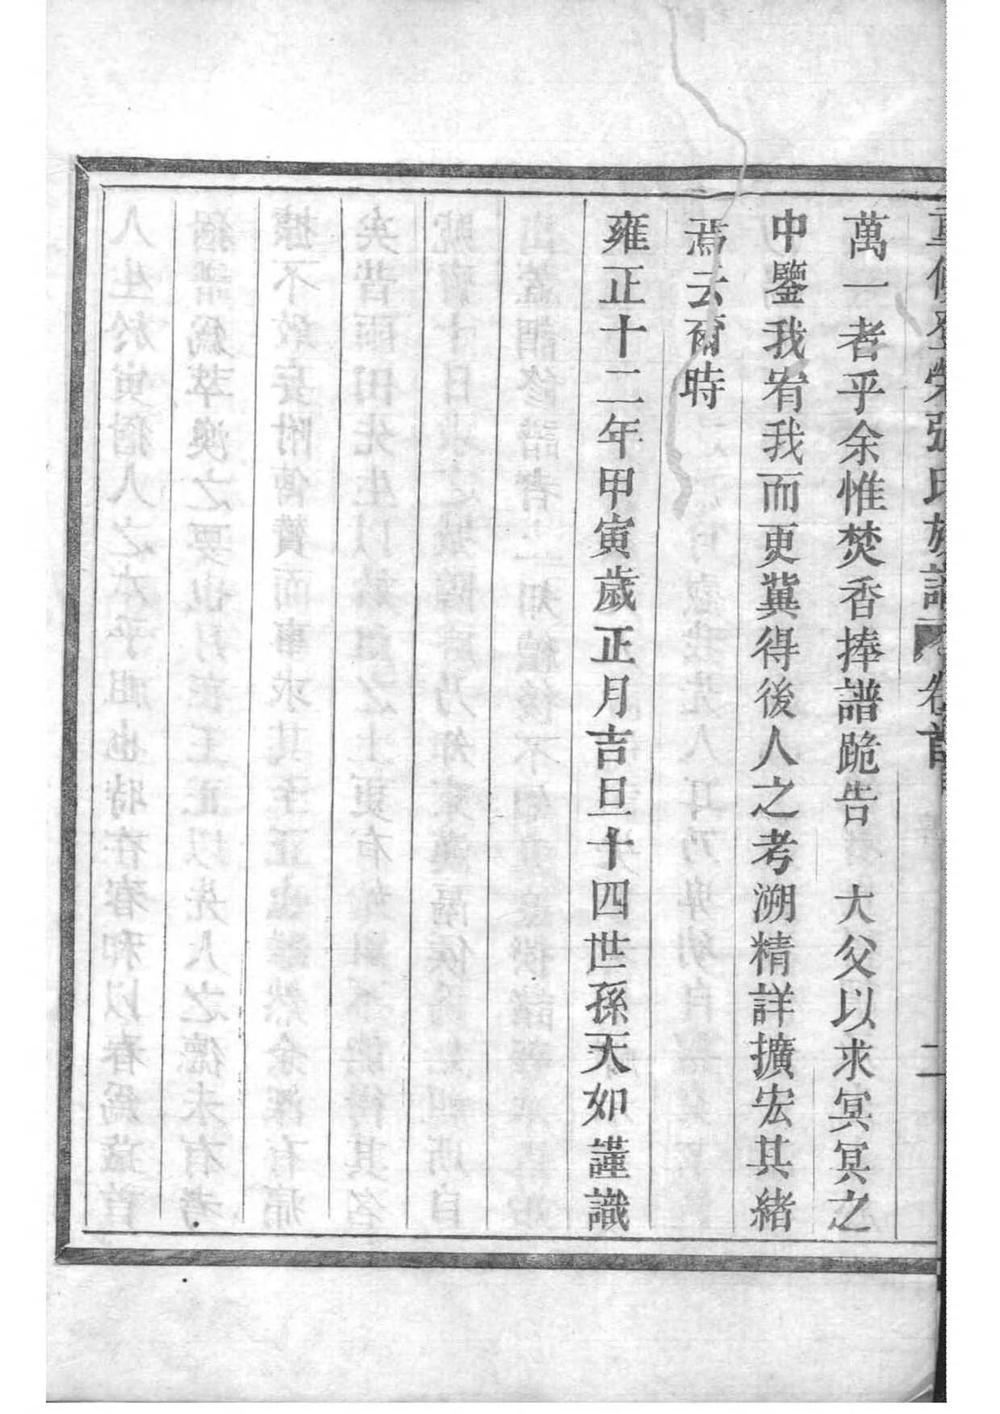 重修登榮張氏族譜 卷首 二
萬一者乎余惟焚香捧譜跪告 大父以求冥冥之
中鑒我宥我而更冀得後人之考溯精詳擴宏其緒
焉云爾時
雍正十二年甲寅歲正月吉旦十四世孫天如謹識